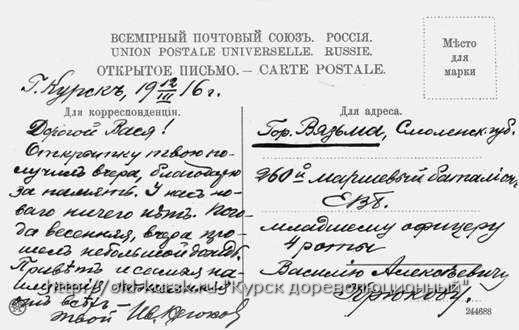 ВСЕМІРНЫЙ ПОЧТОВЫЙ СОЮЗЪ. РОССІЯ.
UNION POSTALE UNIVERSELLE. RUSSIE.
ОТКРЫТОЕ ПИСЬМО.—CARTE POSTALE.
Мѣсто
для
марки
Г. Курскъ, 19 12/III 16 г.
Для корреспонденціи.
Дорогой Вася!
Открытку твою по-
лучилъ вчера, благодарю
за память. У насъ но-
ваго ничего нѣтъ. Пого-
да весенняя, вчера про-
шелъ небольшой дождь.
Привѣтъ и
отъ всѣхъ —
Твой
Для адреса.
Гор. Вязьма, Смоленск. губ.
260й маршевый баталіон,
ЕВБ.
младшему офицеру
4 роты
Василію Алексѣевичу
Крюкову.
http://old-kursk.ru/ "Курск дореволюционный"
244688